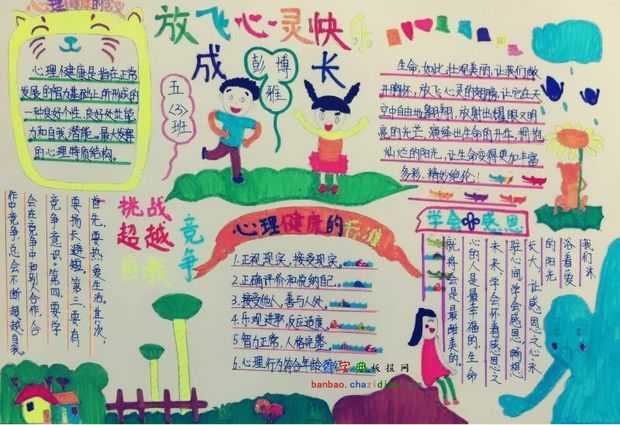 心理健康的含义
心理健康是指在正常
发展的智力基础上所形成的
一种良好个性、良好处世能
力和自我潜能。最大发解
的心理特质结构。
放飞心灵快乐
成长
五
〈3〉
班
彭博
雅
生命,如此,壮观美丽,让我们敞
开胸怀,放飞心灵的翅膀,让它在天
空中自由地翱翔,放射出耀眼又明
亮的光芒,演绎出生命的开华,拥抱
灿烂的阳光,让生命变得更加丰富
多彩、精妙绝伦!
挑战
超越
自我
竞争
首先,要热爱生活。其次,
要扬长避短。第三,要有
竞争意识。第四,要学
会在竞争中和别人合作,合
作中竞争总会不断超越自我。
心理健康的标准
1.正视现实,接受现实。
2.正确评价和悦纳自己。
3.接受他人,善与人处。
4.乐观进取,反应适度。
5.智力正常,人格完整
6.心理行为符合年龄
学会感恩
我们沐
浴着爱
的阳光
长大,让感恩之心永
驻心间,学会感恩,畅想
未来,学会怀着感恩之
心的人是最幸福的,生命
就将会是最甜美的。
查字典板报网
banbao.chazidian.com